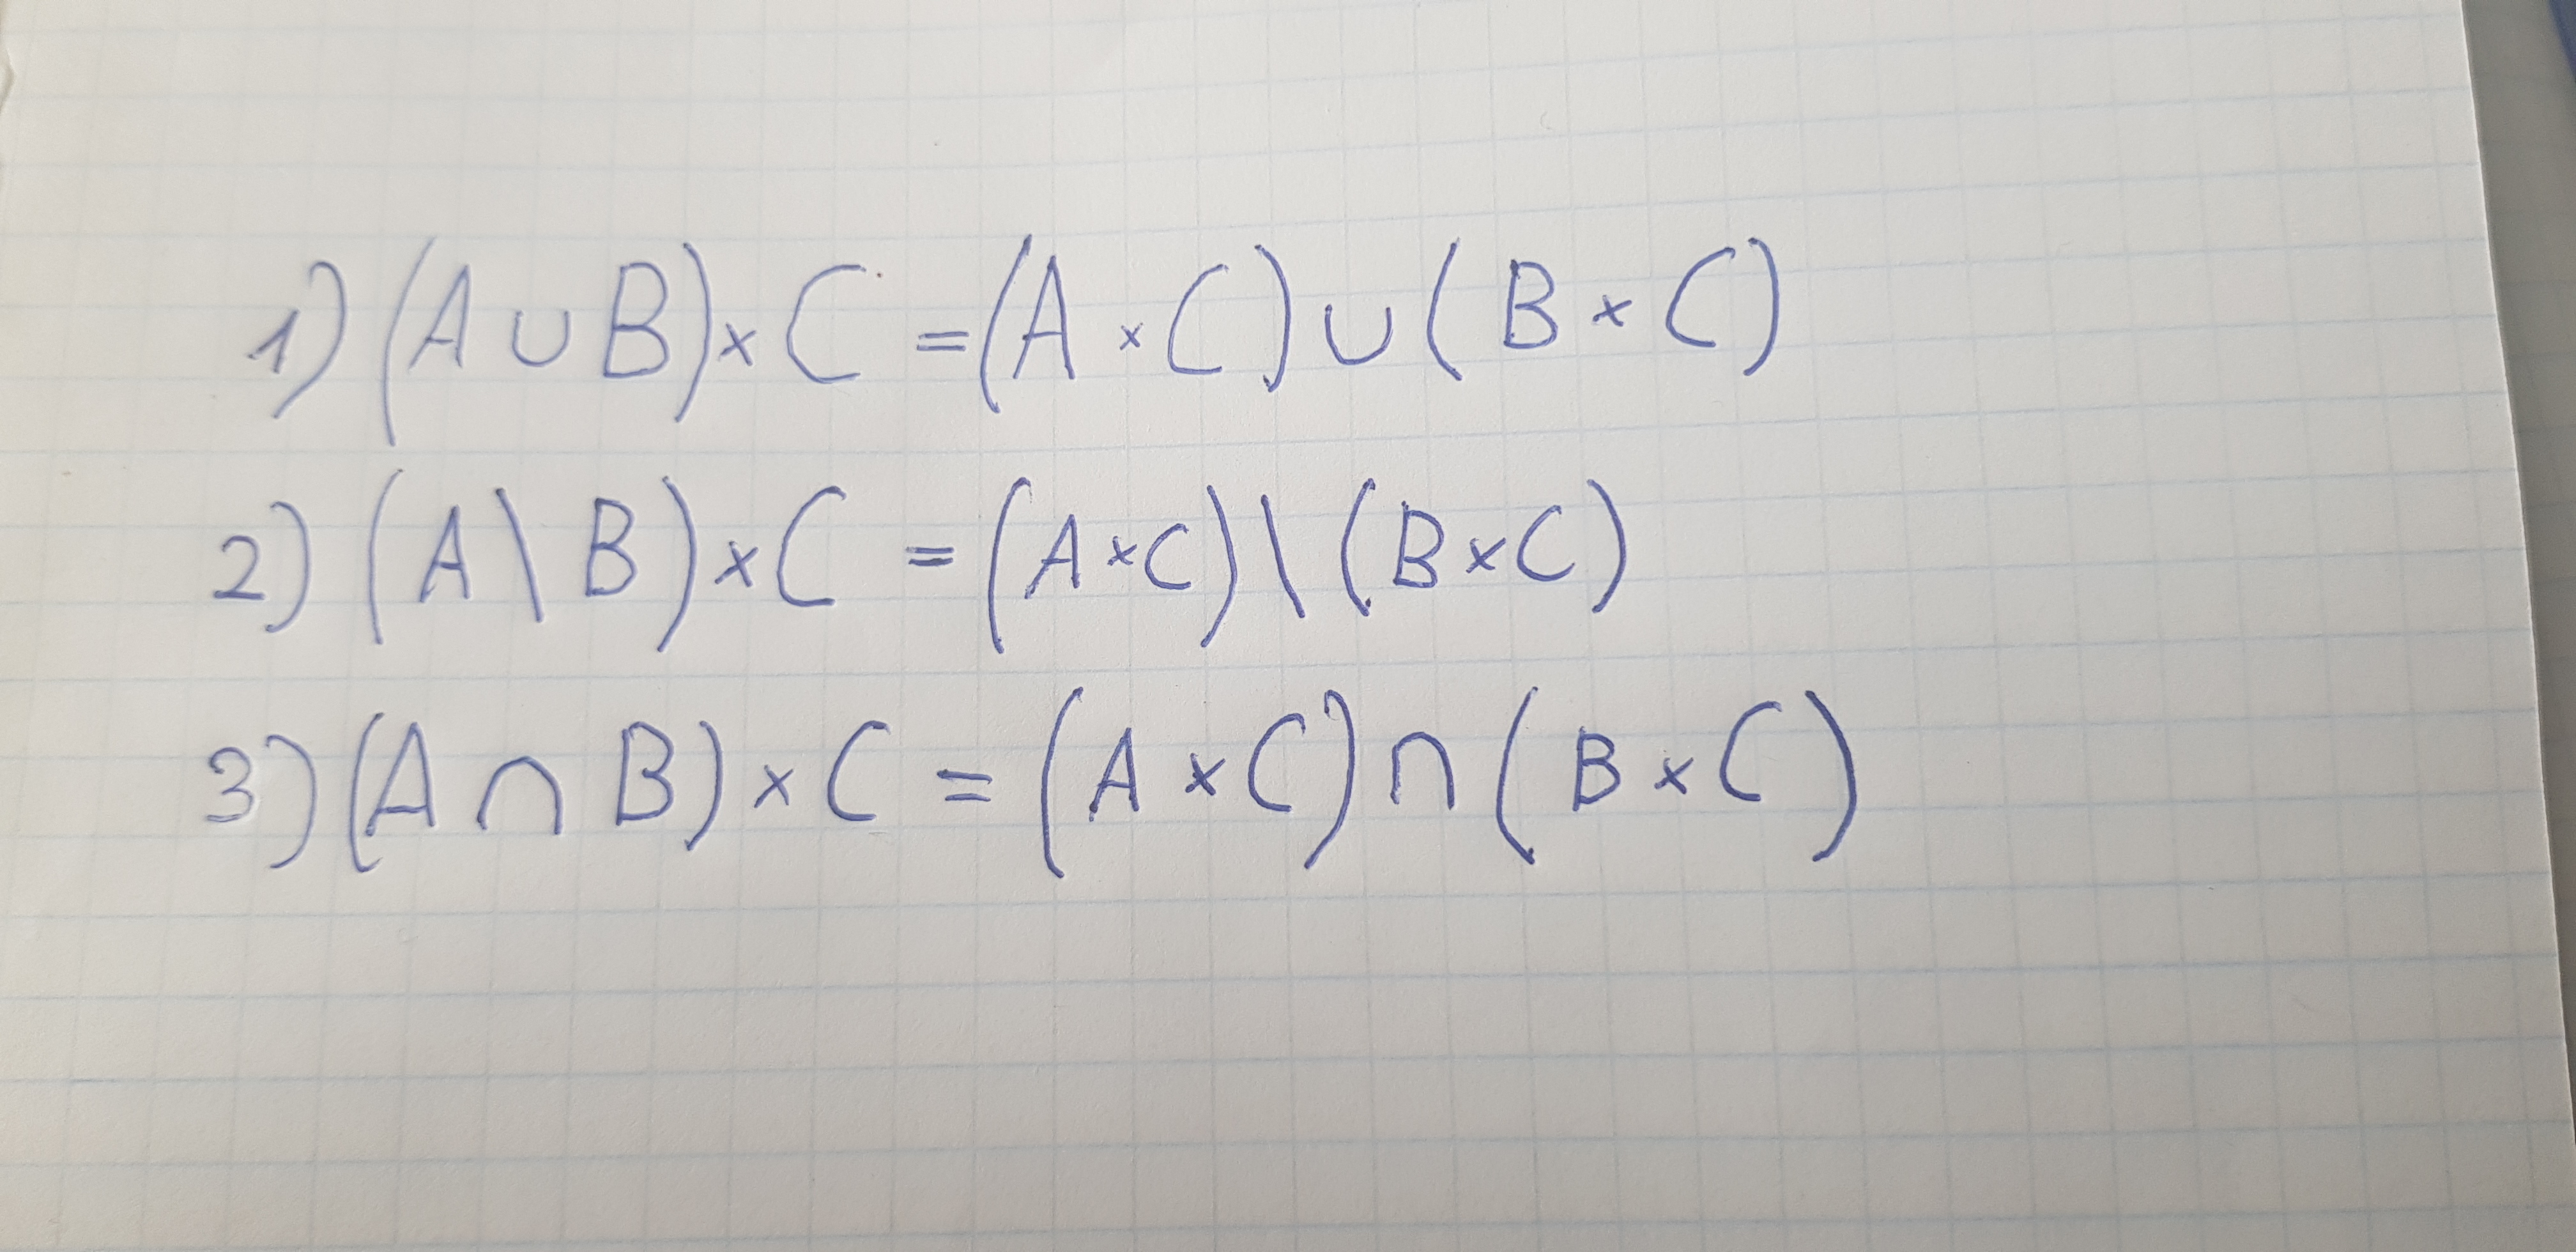 1) (A ∪ B) × C = (A × C) ∪ (B × C)
2) (A \ B) × C = (A × C) \ (B × C)
3) (A ∩ B) × C = (A × C) ∩ (B × C)